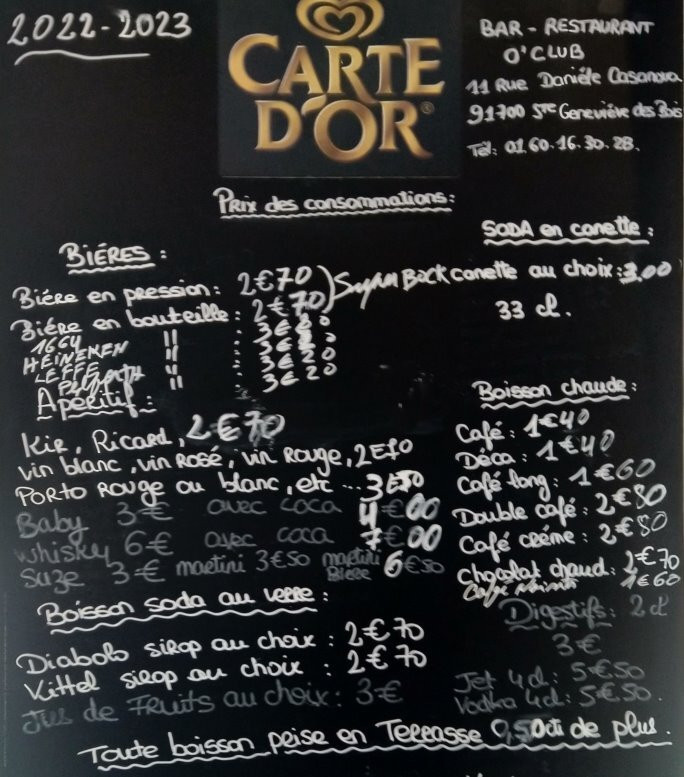 2022-2023
CARTE
D'OR
BAR - RESTAURANT
O'CLUB
11 Rue Danièle Casanova
91700 Ste Geneviève des Bois
Tél: 01.60.16.30.28.
Prix des consommations:
BIÉRES:
Biére en pression: 2€70
Biére en bouteille: 2€70
1664 " : 3€
HEINEKEN " : 3€20
LEFFE " : 3€20
" : 3€20
Apéritif:
Kir, Ricard, 2€70
vin blanc, vin Rosé, vin Rouge, 2€70
Porto Rouge ou blanc, etc ... 3€50
Baby 3€ avec coca 4€00
Whisky 6€ avec coca 7€00
Suze 3€ martini 3€50 martini Bière 6€50
Boisson soda au verre:
Diabolo sirop au choix: 2€70
Vittel sirop au choix: 2€70
Jus de Fruits au choix: 3€
SODA en canette:
canette au choix: 3,00
33 cl.
Boisson chaude:
Café: 1€40
Déca: 1€40
Café long: 1€60
Double café: 2€80
Café créme: 2€80
Chocolat chaud: 2€70
Café 1€60
Digestifs: 2cl
3€
Jet 4cl: 5€50
Vodka 4cl: 5€50.
Toute boisson prise en Terrasse 0,50cti de plus.